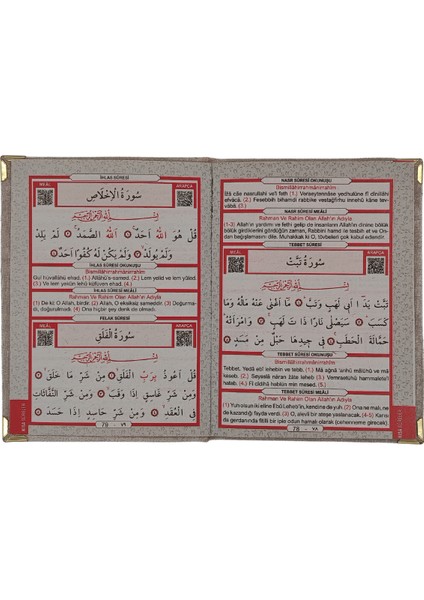 NASR SÛRESİ OKUNUŞU
Bismillâhirrahmânirrahîm
İzâ câe nasrullahi vel'feth (1.) Veraeytennâse yedhulûne fî dinillâhi
efvâcâ. (2.) Fesebbih bihamdi rabbike vestağfirhu innehû kâne tev-
vâbâ. (3.)
NASR SÛRESİ MEÂLİ
Rahman Ve Rahim Olan Allah'ın Adıyla
(1-3) Allah'ın yardımı ve fethi gelip de insanların Allah'ın dinine bölük
bölük girdiklerini gördüğün zaman, Rabbini hamd ile tesbih et ve On-
dan bağışlamasını dile. Muhakkak ki O, tövbeleri çok kabul edendir.
TEBBET SÛRESİ
MEÂL
سُورَةُ تَبَّتْ
ARAPÇA
تَبَّتْ يَدَٓا اَبٖي لَهَبٍ وَتَبَّ ۝ مَٓا اَغْنٰى عَنْهُ مَالُهُ وَمَا
كَسَبَ ۝ سَيَصْلٰى نَارًا ذَاتَ لَهَبٍ ۝ وَامْرَاَتُهُ
حَمَّالَةَ الْحَطَبِ ۝ فٖي جٖيدِهَا حَبْلٌ مِنْ مَسَدٍ ۝
TEBBET SÛRESİ OKUNUŞU
Bismillâhirrahmânirrahîm
Tebbet. Yedâ ebî lehebin ve tebb. (1.) Mâ ağnâ 'anhü mâlühû ve mâ
keseb. (2.) Seyaslâ nâran zâte leheb. (3.) Vemraetühû hammaletel'l
hatab. (4.) Fî cîdihâ hablün min mesed. (5.)
TEBBET SÛRESİ MEÂLİ
Rahman Ve Rahim Olan Allah'ın Adıyla
(1) Yuh olsun iki eline Ebû Leheb'in, kendine de yuh. (2) Ona ne malı, ne
de kazandığı fayda verdi. (3) O, bir alevli ateşe yaslanacak. (4-5) Karısı
da gerdanında fitilli bir iple odun hamalı olarak (cehenneme girecek).
78 - ٧٨
İHLAS SÛRESİ
MEÂL
سُورَةُ الْاِخْلَاصِ
ARAPÇA
قُلْ هُوَ اللّٰهُ اَحَدٌ ۝ اَللّٰهُ الصَّمَدُ ۝ لَمْ يَلِدْ
وَلَمْ يُولَدْ ۝ وَلَمْ يَكُنْ لَهُ كُفُوًا اَحَدٌ ۝
İHLAS SÛRESİ OKUNUŞU
Bismillâhirrahmânirrahîm
Gul hüvallâhü ehad. (1.) Allahüs samed. (2.) Lem yelid ve lem yûled.
(3.) Ve lem yekün lehû küfüven ehad. (4.)
İHLAS SÛRESİ MEÂLİ
Rahman Ve Rahim Olan Allah'ın Adıyla
(1) De ki: O Allah, birdir. (2) Allah, O eksiksiz sameddir. (3) Doğurma-
dı, doğurulmadı. (4) Ona hiçbir şey denk de olmadı.
FELAK SÛRESİ
MEÂL
سُورَةُ الْفَلَقِ
ARAPÇA
قُلْ اَعُوذُ بِرَبِّ الْفَلَقِ ۝ مِنْ شَرِّ مَا خَلَقَ ۝
وَمِنْ شَرِّ غَاسِقٍ اِذَا وَقَبَ ۝ وَمِنْ شَرِّ النَّفَّاثَاتِ
فِي الْعُقَدِ ۝ وَمِنْ شَرِّ حَاسِدٍ اِذَا حَسَدَ ۝
79 - ٧٩